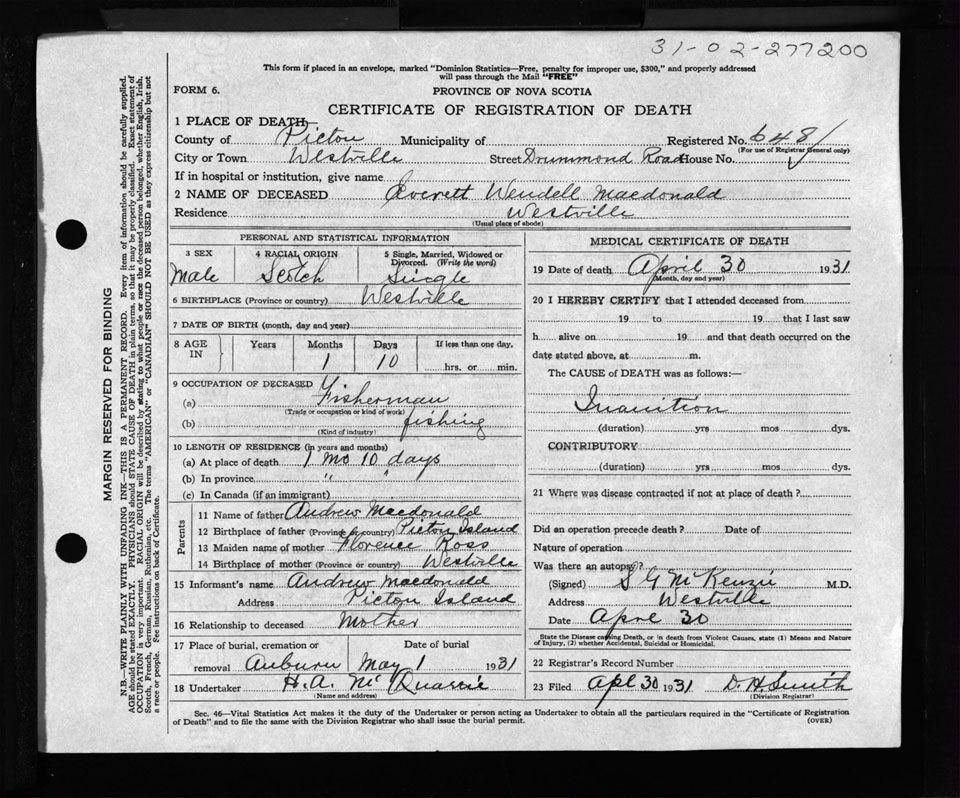 31-02-277200
This form if placed in an envelope, marked "Dominion Statistics—Free, penalty for improper use, $300," and properly addressed
will pass through the Mail "FREE"
FORM 6.
PROVINCE OF NOVA SCOTIA
CERTIFICATE OF REGISTRATION OF DEATH
1 PLACE OF DEATH—
County of Pictou Municipality of Registered No. 648
(For use of Registrar General only)
City or Town Westville Street Drummond Road House No.
If in hospital or institution, give name
2 NAME OF DECEASED Everett Wendell Macdonald
Residence Westville
(Usual place of abode)
PERSONAL AND STATISTICAL INFORMATION
3 SEX 4 RACIAL ORIGIN 5 Single, Married, Widowed or
Divorced. (Write the word)
Male Scotch Single
6 BIRTHPLACE (Province or country) Westville
7 DATE OF BIRTH (month, day and year)
8 AGE IN Years Months Days If less than one day.
1 10 hrs. or min.
9 OCCUPATION OF DECEASED
(a) Fisherman
(Trade or occupation or kind of work)
(b) fishing
(Kind of industry)
10 LENGTH OF RESIDENCE (in years and months)
(a) At place of death 1 mo 10 days
(b) In province " "
(c) In Canada (if an immigrant)
Parents
11 Name of father Andrew Macdonald
12 Birthplace of father (Province or country) Pictou Island
13 Maiden name of mother Florence Ross
14 Birthplace of mother (Province or country) Westville
15 Informant's name Andrew Macdonald
Address Pictou Island
16 Relationship to deceased Mother
17 Place of burial, cremation or Date of burial
removal Auburn May 1 1931
18 Undertaker H.A. McQuarrie
(Name and address)
MEDICAL CERTIFICATE OF DEATH
19 Date of death April 30 1931
(Month, day and year)
20 I HEREBY CERTIFY that I attended deceased from
19 to 19 that I last saw
h alive on 19 and that death occurred on the
date stated above, at m.
The CAUSE of DEATH was as follows:—
Inanition
(duration) yrs mos dys.
CONTRIBUTORY
(duration) yrs mos dys.
21 Where was disease contracted if not at place of death?
Did an operation precede death? Date of
Nature of operation
Was there an autopsy?
(Signed) S G McKenzie M.D.
Address Westville
Date April 30
State the Disease causing Death, or in death from Violent Causes, state (1) Means and Nature
of Injury, (2) whether Accidental, Suicidal or Homicidal.
22 Registrar's Record Number
23 Filed Apl 30 1931 D. H. Smith
(Division Registrar)
Sec. 46—Vital Statistics Act makes it the duty of the Undertaker or person acting as Undertaker to obtain all the particulars required in the "Certificate of Registration
of Death" and to file the same with the Division Registrar who shall issue the burial permit.
(OVER)
MARGIN RESERVED FOR BINDING
N.B.—WRITE PLAINLY WITH UNFADING INK—THIS IS A PERMANENT RECORD. Every item of information should be carefully supplied.
AGE should be stated EXACTLY. PHYSICIANS should STATE CAUSE OF DEATH in plain terms, so that it may be properly classified. Exact statement of
OCCUPATION is very important. RACIAL ORIGIN will be described by stating to what people or race the deceased person belonged, whether English, Irish,
Scotch, French, German, Russian, Ruthenian, etc. The terms "AMERICAN" or "CANADIAN" SHOULD NOT BE USED as they express citizenship but not
a race or people. Fee instructions on back of Certificate.